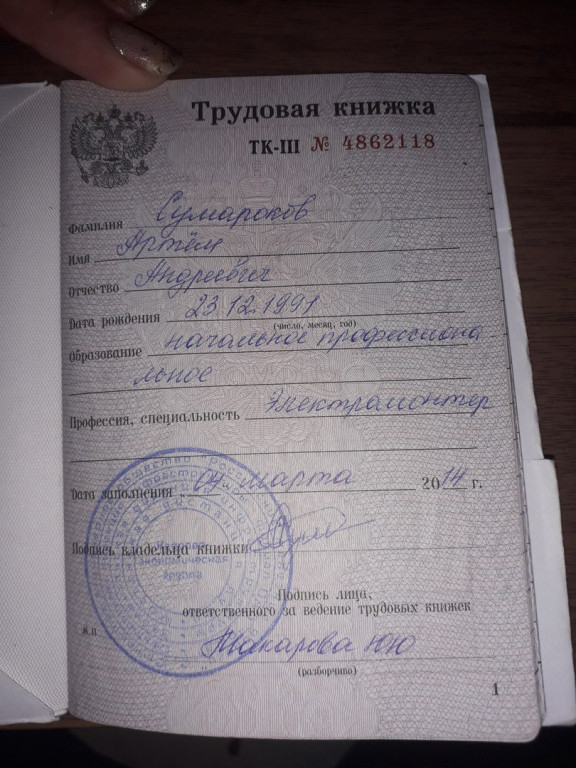 Трудовая книжка
ТК-III № 4862118
Фамилия Сумароков
Имя Артём
Отчество Андреевич
Дата рождения 23.12.1991
(число, месяц, год)
Образование начальное профессиона
льное
Профессия, специальность Электромонтер
Дата заполнения „04 марта 2014 г.
Подпись владельца книжки
Подпись лица,
ответственного за ведение трудовых книжек
М.П.
Макарова ЮЮ
(разборчиво)
экономическая
группа
1